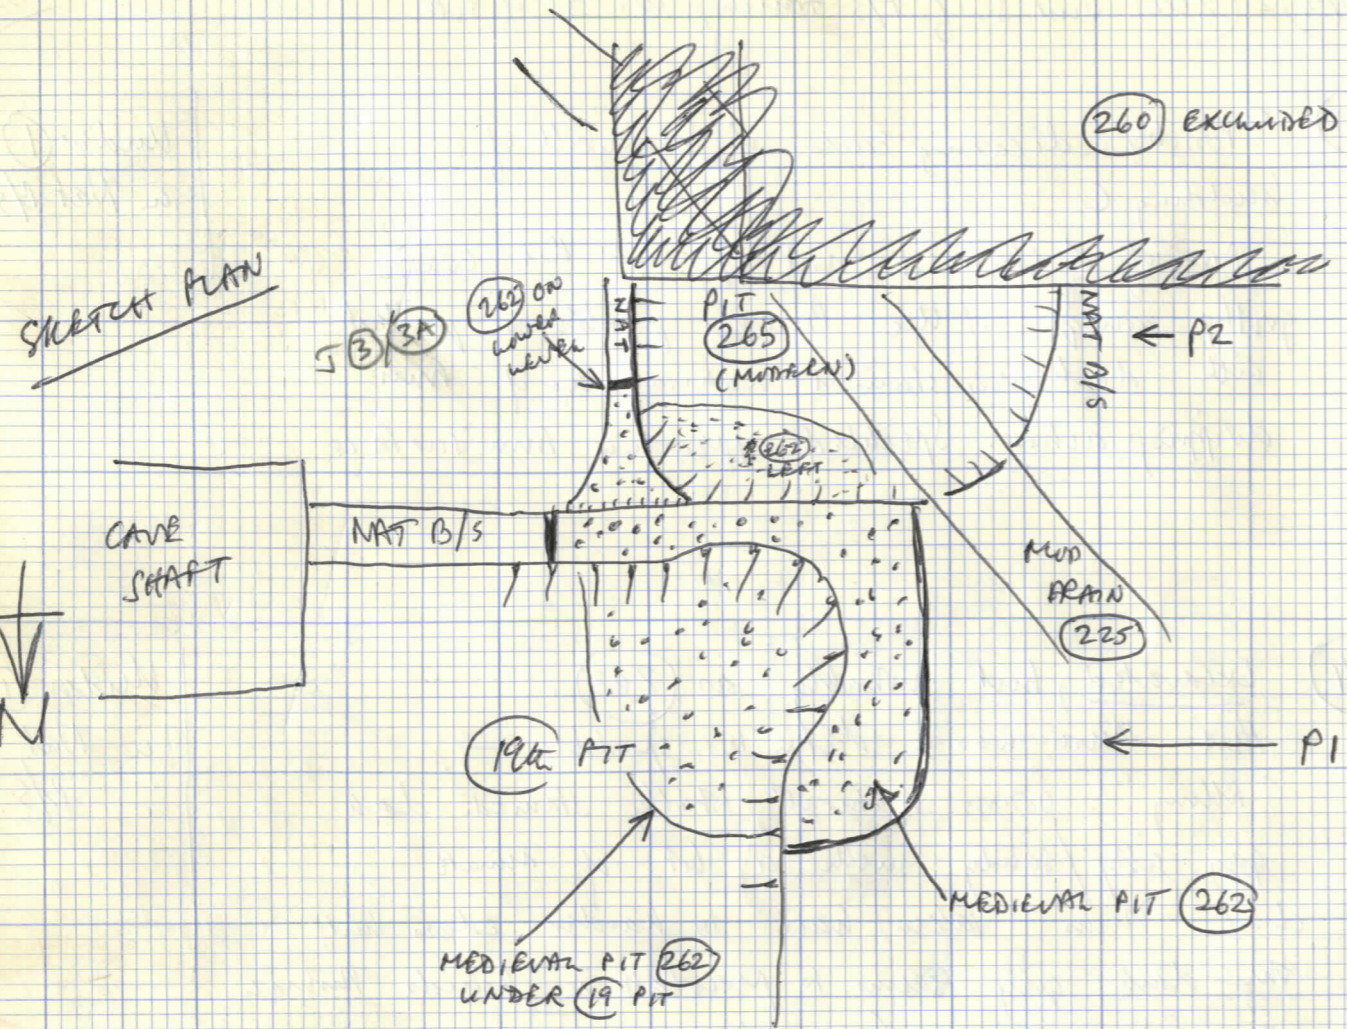 260 EXCLUDED
SKETCH PLAN
J 3/3A
262 ON
LOWER
LEVEL
NAT
PIT
265
(MODERN)
NAT B/S
← P2
262
LEFT
CAVE
SHAFT
NAT B/S
MOD
DRAIN
225
N
19th PIT
← P1
MEDIEVAL PIT 262
MEDIEVAL PIT 262
UNDER 19 PIT